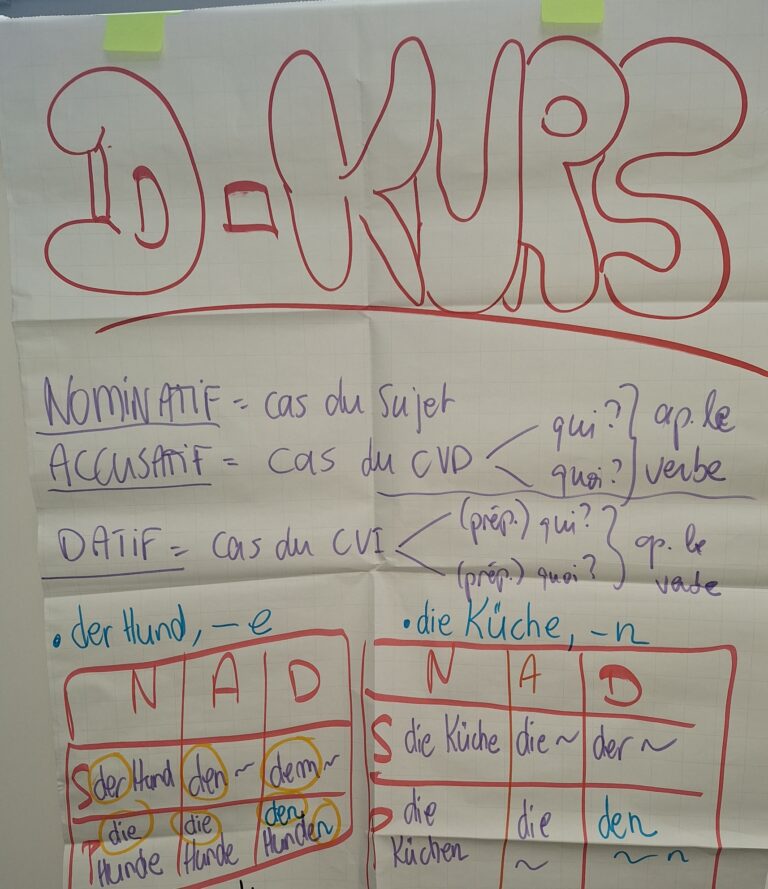 D-KURS
NOMINATIF = cas du sujet
ACCUSATIF = cas du CVD qui? quoi? } ap. le verbe
DATIF = cas du CVI (prép.) qui? (prép.) quoi? } ap. le verbe
• der Hund, -e
N A D
S der Hund den ~ dem ~
P die Hunde die Hunde den Hunden
• die Küche, -n
N A D
S die Küche die ~ der ~
P die Küchen die ~ den ~ n